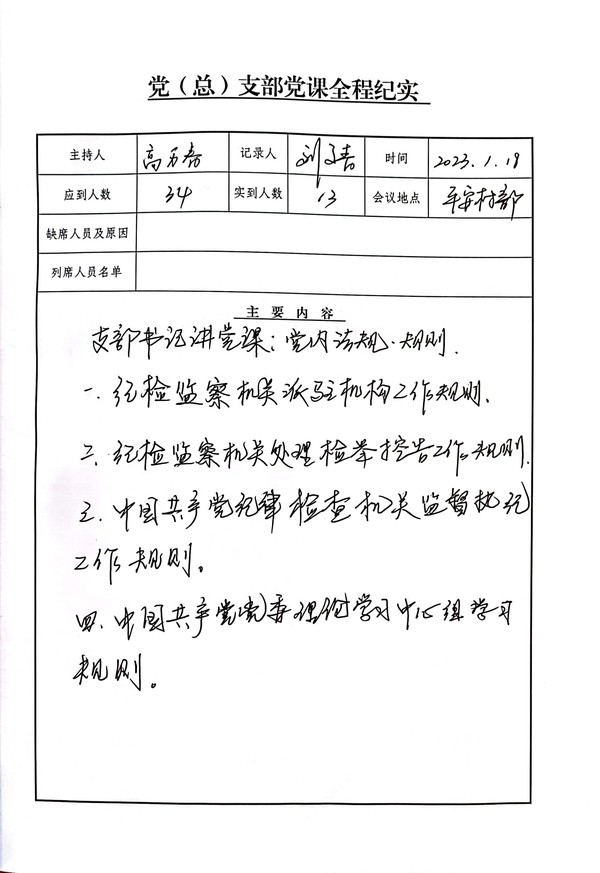 党（总）支部党课全程纪实
主持人 高 记录人 刘 时间 2023.1.19
应到人数 34 实到人数 13 会议地点 平安村部
缺席人员及原因
列席人员名单
主要内容
支部书记讲党课：党内法规、规则.
一.纪检监察机关派驻机构工作规则.
二.纪检监察机关处理检举控告工作规则.
三.中国共产党纪律检查机关监督执纪
工作规则。
四.中国共产党党委理论学习中心组学习
规则。